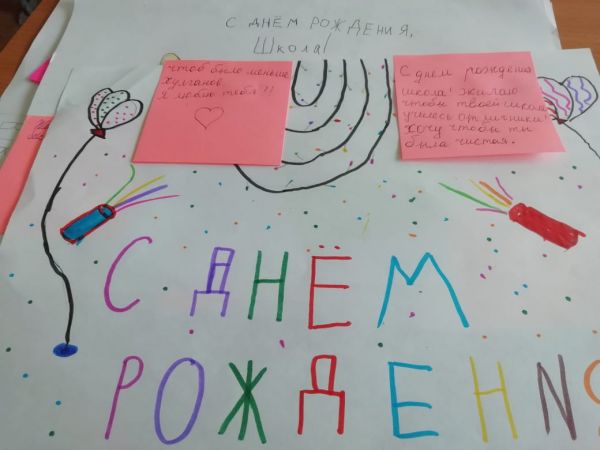 С ДНЁМ РОЖДЕНИЯ,
Школа!
чтоб было меньше
Хулганов.
Я люблю тебя!!
С днем рождения
школа! Желаю
чтобы твоей школе
учились отличники!
Хочу чтобы ты
была чистая.
С ДНЁМ
РОЖДЕНИЯ